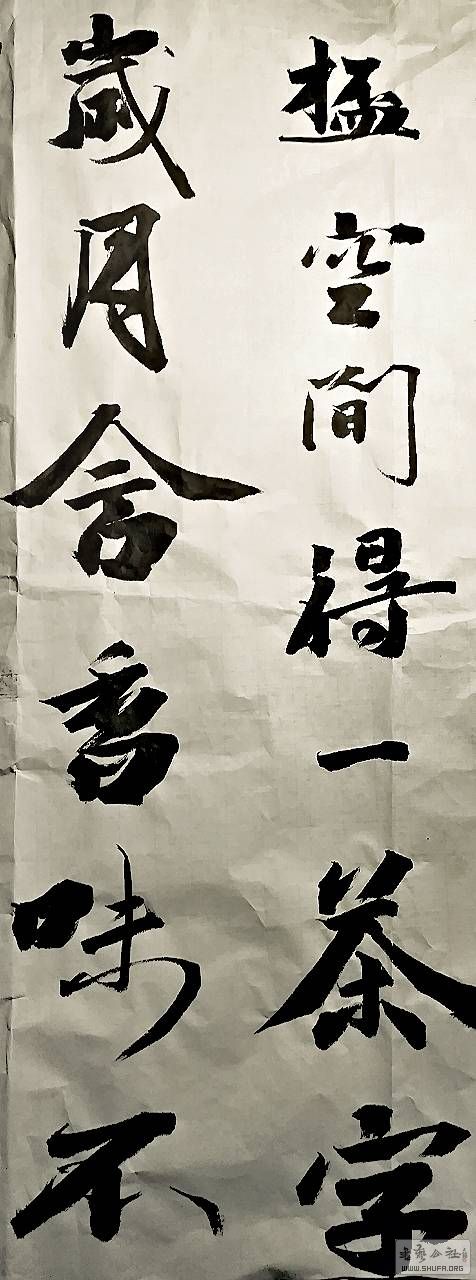 極空間得一茶字
歲月含香味不
书艺公社
WWW.SHUFA.ORG